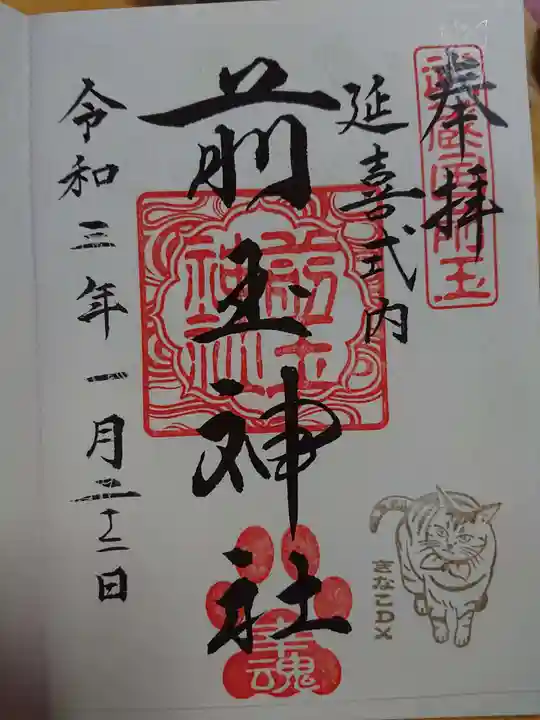 奉拝
武蔵国前玉
延喜式内
前玉神社
前玉神社
幸魂
令和三年一月二十二日
きなこDX